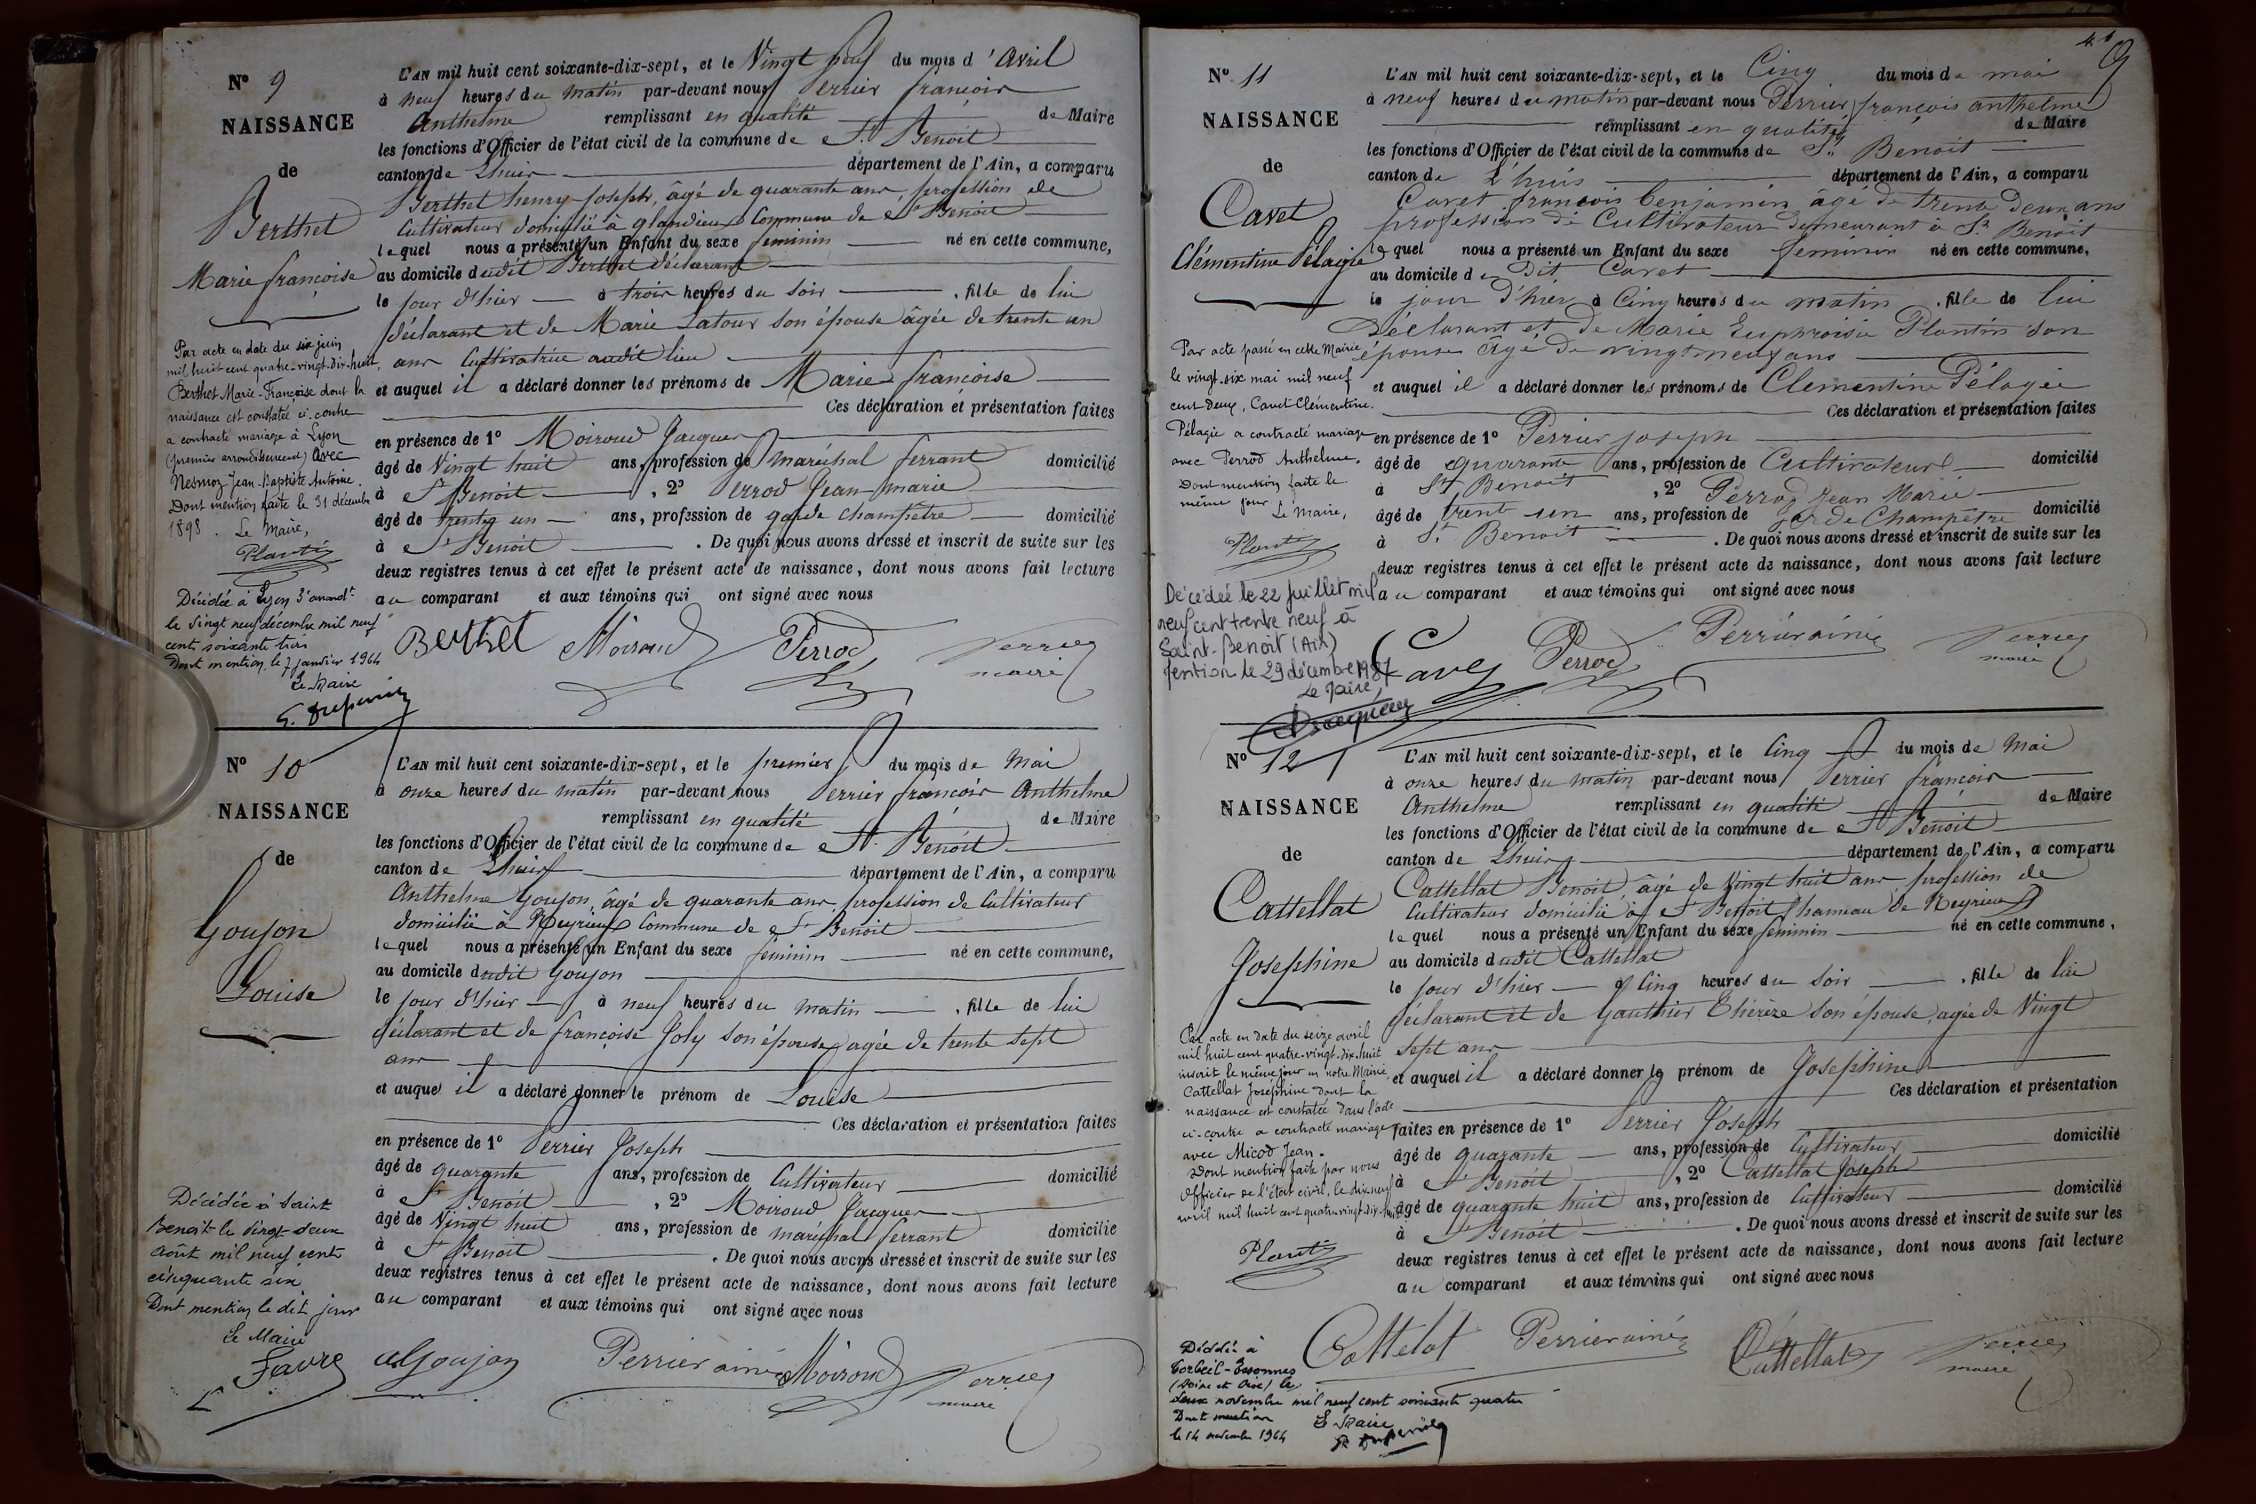 Nº 9
NAISSANCE
de
Berthet
Marie françoise
Par acte en date du six juin
mil huit cent quatre-vingt-dix-huit,
Berthet Marie-Françoise dont la
naissance est constatée ci-contre
a contracté mariage à Lyon
(premier arrondissement) avec
Nesmoz Jean-Baptiste Antoine.
Dont mention faite le 31 décembre
1898. Le Maire,
Plantin
Décédée à Lyon 3e arrondt
le vingt neuf décembre mil neuf
cent soixante trois
Dont mention, le 7 janvier 1964
Le Maire
L'AN mil huit cent soixante-dix-sept, et le Vingt neuf du mois d'Avril
à neuf heures du matin par-devant nous Perrier françois
Anthelme remplissant en qualité de Maire
les fonctions d'Officier de l'état civil de la commune de St Benoit
canton de Lhuis département de l'Ain, a comparu
Berthet henry Joseph, âgé de quarante ans, profession de
Cultivateur domicilié à glandieu Commune de St Benoit
lequel nous a présenté un Enfant du sexe feminin né en cette commune,
au domicile dudit Berthet déclarant
le jour d'hier à trois heures du soir, fille de lui
déclarant et de Marie Latour son épouse âgée de trente un
ans Cultivatrice audit lieu
et auquel il a déclaré donner les prénoms de Marie françoise
Ces déclaration et présentation faites
en présence de 1º Moiroud Jacques
âgé de Vingt huit ans, profession de maréchal ferrant domicilié
à St Benoit, 2º Perrod Jean-marie
âgé de trente un ans, profession de garde champêtre domicilié
à St Benoit. De quoi nous avons dressé et inscrit de suite sur les
deux registres tenus à cet effet le présent acte de naissance, dont nous avons fait lecture
au comparant et aux témoins qui ont signé avec nous
Berthet Moiroud Perrod Perrier
maire
Nº 10
NAISSANCE
de
Goujon
Louise
Décédée à Saint
Benoit le vingt deux
août mil neuf cent
cinquante six
Dont mention le dit jour
Le Maire
Favre
L'AN mil huit cent soixante-dix-sept, et le premier du mois de Mai
à onze heures du matin par-devant nous Perrier françois Anthelme
remplissant en qualité de Maire
les fonctions d'Officier de l'état civil de la commune de St Benoit
canton de Lhuis département de l'Ain, a comparu
Anthelme Goujon, âgé de quarante ans, profession de Cultivateur
domicilié à Meyrieu Commune de St Benoit
lequel nous a présenté un Enfant du sexe feminin né en cette commune,
au domicile dudit Goujon
le jour d'hier à neuf heures du matin, fille de lui
déclarant et de françoise Joly son épouse, agée de trente sept
ans
et auquel il a déclaré donner le prénom de Louise
Ces déclaration et présentation faites
en présence de 1º Perrier Joseph
âgé de quarante ans, profession de Cultivateur domicilié
à St Benoit, 2º Moiroud Jacques
âgé de Vingt huit ans, profession de maréchal ferrant domicilié
à St Benoit. De quoi nous avons dressé et inscrit de suite sur les
deux registres tenus à cet effet le présent acte de naissance, dont nous avons fait lecture
au comparant et aux témoins qui ont signé avec nous
Goujon Perrier ainé Moiroud Perrier
maire
Nº 11
NAISSANCE
de
Cavet
Clémentine Pélagie
Par acte passé en cette Mairie
le vingt-six mai mil neuf
cent deux, Cavet Clémentine
Pélagie a contracté mariage
avec Perrod Anthelme.
Dont mention faite le
même jour Le Maire,
Plantin
Décédée le 22 Juillet mil
neuf cent trente neuf à
Saint-Benoit (Ain)
mention le 29 décembre 1987
Le Maire,
L'AN mil huit cent soixante-dix-sept, et le Cinq du mois de mai
à neuf heures du matin par-devant nous Perrier françois anthelme
remplissant en qualité de Maire
les fonctions d'Officier de l'état civil de la commune de St Benoit
canton de Lhuis département de l'Ain, a comparu
Cavet françois benjamin âgé de trente deux ans
profession de Cultivateur demeurant à St Benoit
lequel nous a présenté un Enfant du sexe feminin né en cette commune,
au domicile du Dit Cavet
le jour d'hier à Cinq heures du matin, fille de lui
Déclarant et de Marie Euphroisie Plantin son
épouse âgé de vingt neuf ans
et auquel il a déclaré donner les prénoms de Clementine Pélagie
Ces déclaration et présentation faites
en présence de 1º Perrier joseph
âgé de quarante ans, profession de Cultivateur domicilié
à St Benoit, 2º Perrod Jean Marie
âgé de trent un ans, profession de garde Champêtre domicilié
à St Benoit. De quoi nous avons dressé et inscrit de suite sur les
deux registres tenus à cet effet le présent acte de naissance, dont nous avons fait lecture
au comparant et aux témoins qui ont signé avec nous
Cavet Perrod Perrier ainé Perrier
maire
Nº 12
NAISSANCE
de
Cattellat
Josephine
Par acte en date du seize avril
mil huit cent quatre-vingt-dix-huit
inscrit le même jour en notre Mairie
Cattellat Joséphine dont la
naissance est constatée dans l'acte
ci-contre a contracté mariage
avec Micod Jean.
Dont mention faite par nous
Officier de l'état civil, le dix-neuf
avril mil huit cent quatre-vingt-dix-huit
Plantin
Décédée à
Corbeil-Essonnes
(Seine et Oise) le
deux novembre mil neuf cent soixante quatre
Dont mention
le 14 novembre 1964
Le Maire
L'AN mil huit cent soixante-dix-sept, et le Cinq du mois de Mai
à onze heures du matin par-devant nous Perrier françois
Anthelme remplissant en qualité de Maire
les fonctions d'Officier de l'état civil de la commune de St Benoit
canton de Lhuis département de l'Ain, a comparu
Cattellat Benoit, âgé de Vingt huit ans, profession de
Cultivateur domicilié à St Benoit hameau de Meyrieu
lequel nous a présenté un Enfant du sexe feminin né en cette commune,
au domicile dudit Cattellat
le jour d'hier à Cinq heures du soir, fille de lui
déclarant et de Gauthier Thérèze son épouse, agée de Vingt
sept ans
et auquel il a déclaré donner le prénom de Josephine
Ces déclaration et présentation
faites en présence de 1º Perrier Joseph
âgé de quarante ans, profession de Cultivateur domicilié
à St Benoit, 2º Cattellat Joseph
âgé de quarante huit ans, profession de Cultivateur domicilié
à St Benoit. De quoi nous avons dressé et inscrit de suite sur les
deux registres tenus à cet effet le présent acte de naissance, dont nous avons fait lecture
au comparant et aux témoins qui ont signé avec nous
Cattelat Perrier ainé Cattellat Perrier
maire